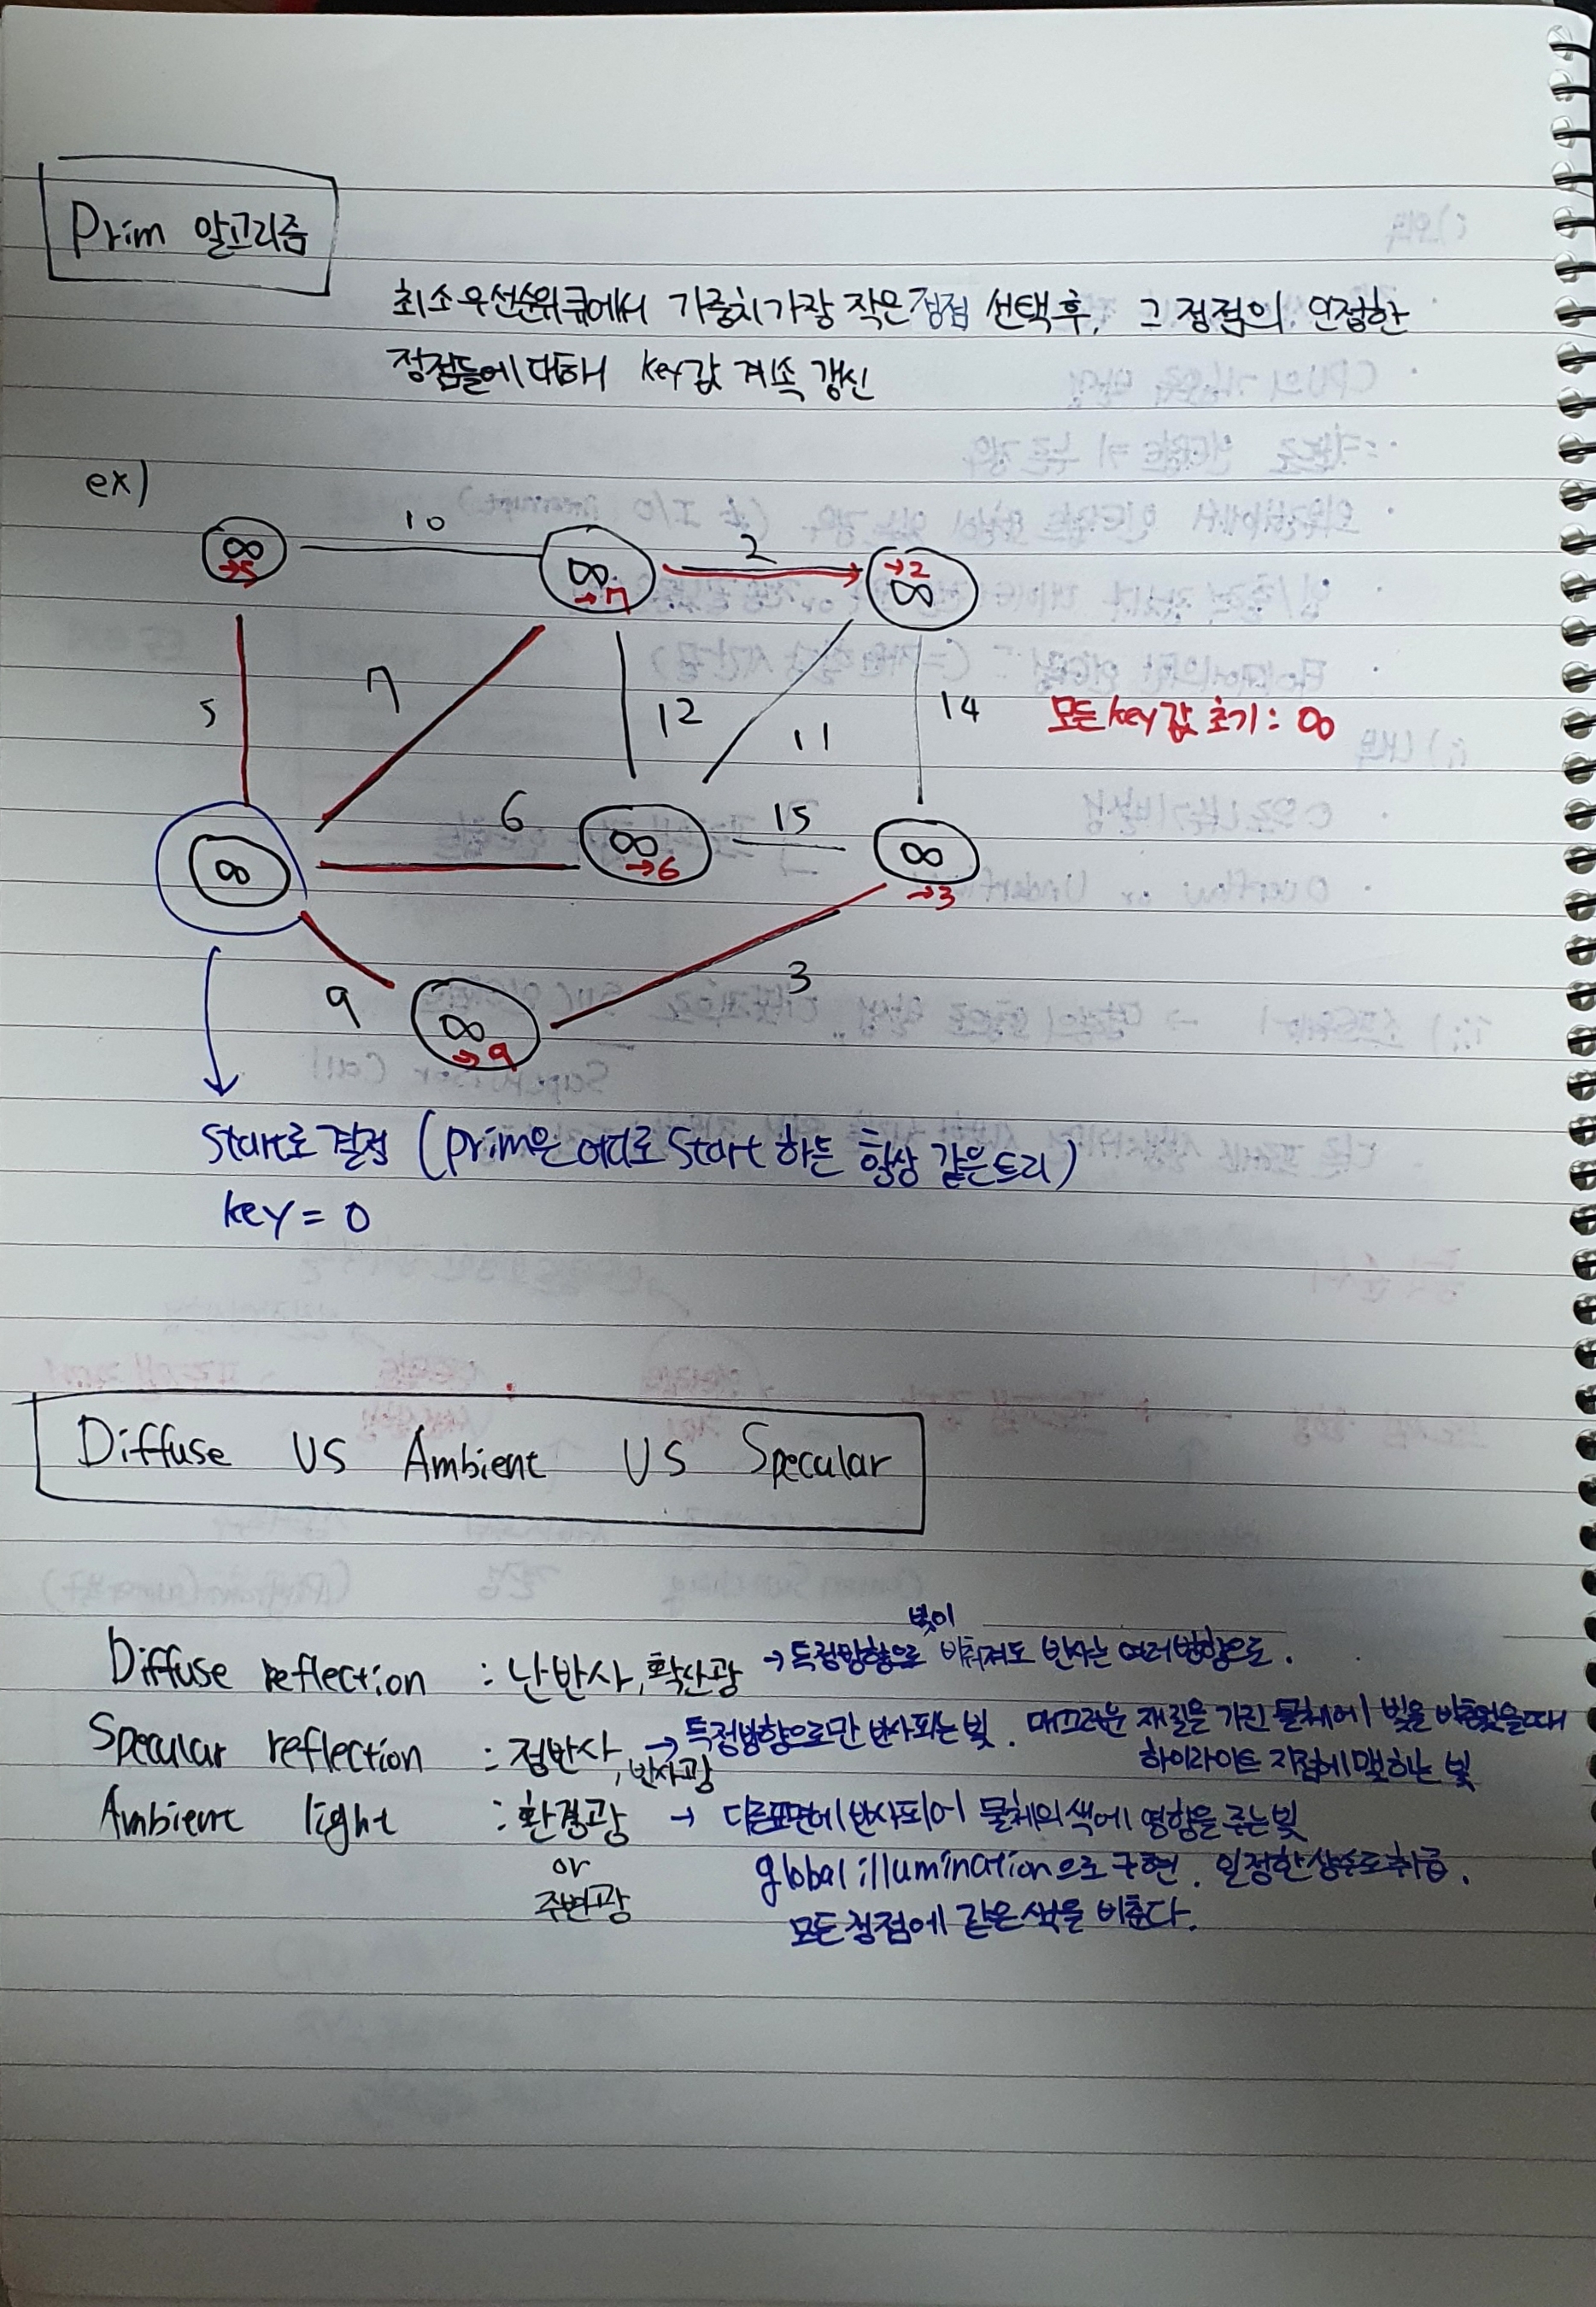 Prim 알고리즘
최소우선순위큐에서 가중치가장 작은정점 선택후, 그 정점의 인접한
정점들에대해 key값 계속 갱신
ex)
10
2
∞
→5
∞
→7
→2
∞
5
7
12
11
14
모든 key값 초기: ∞
6
15
∞
∞
→6
∞
→3
9
3
∞
→9
Start로 결정 (prim은 어디로 Start 하든 항상 같은트리)
key = 0
Diffuse VS Ambient VS Specular
Diffuse reflection : 난반사, 확산광 → 특정방향으로 빛이 비춰져도 반사는 여러방향으로.
Specular reflection : 정반사, 반사광 → 특정방향으로만 반사되는 빛. 매끄러운 재질을 가진 물체에 빛을 비추었을때
하이라이트 지점에 맺히는 빛
Ambient light : 환경광 → 다른표면에 반사되어 물체의 색에 영향을 주는 빛
or
주변광
global illumination으로 구현. 일정한 상수로 취급.
모든 정점에 같은색을 비춘다.